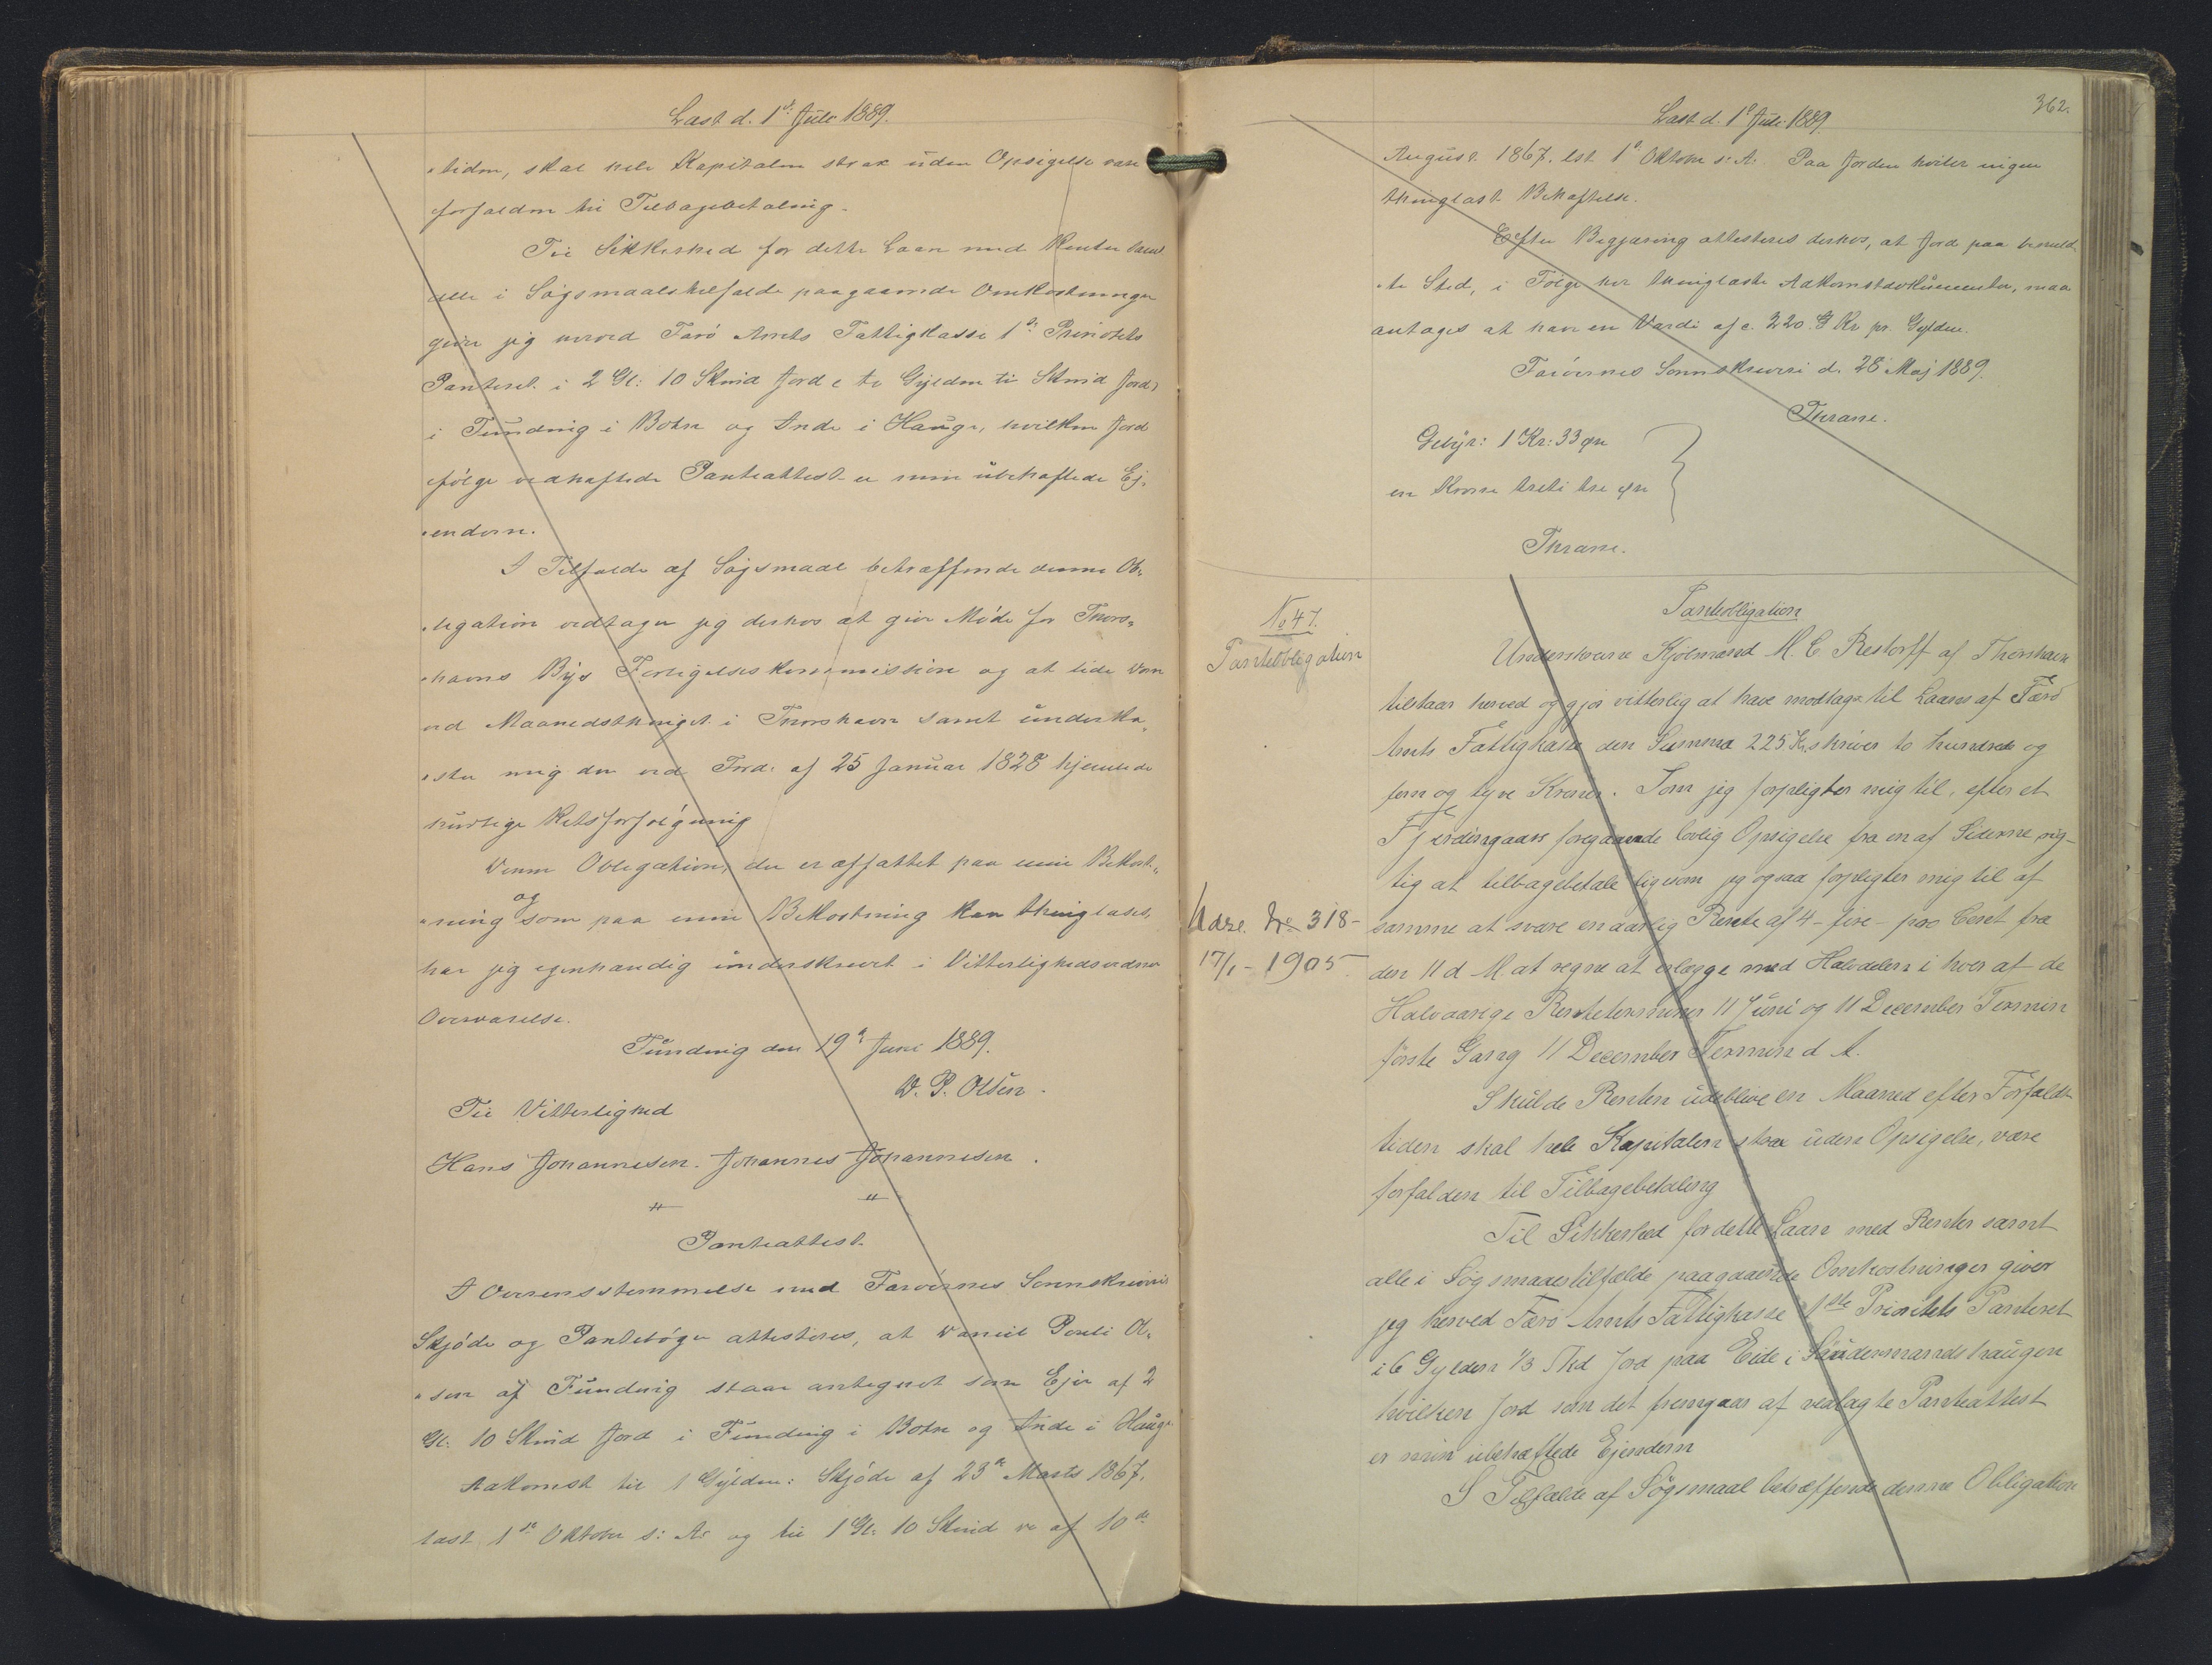 Læst d. 1ste Juli 1889.
"tiden, skal hele Kapitalen strax uden Opsigelse være
forfalden til Tilbagebetaling.
Til Sikkerhed for dette Laan med Renter samt
alle i Søgsmaalstilfælde paagaaende Omkostninger
giver jeg herved Færø Amts Fattigkasse 1ste Prioritets
Panteret i 2 Gl: 10 Skind Jord (to Gylden ti Skind Jord)
i Funding i Botn og Inde i Hauge, hvilken Jord
ifølge vedhæftede Panteattest er min ubehæftede Ej-
"endom.
I Tilfælde af Søgsmaal betræffende denne Ob-
"ligation vedtager jeg derhos at give Møde for Thors-
"havns Bys Forligelseskommission og at lide Dom
ved Maanedsthinget i Thorshavn samt underka-
"ster mig den ved Frd. af 25 Januar 1828 hjemlede
hurtige Retsforfølgning
Denne Obligation, der er affattet paa min Bekost-
"ning og som paa min Bekostning kan thinglæses,
har jeg egenhændig underskrevet i Vitterlighedsvidners
Overværelse.
Funding den 19de Juni 1889.
D. P. Olsen.
Til Vitterlighed
Hans Johannesen. Johannes Johannesen.
" "
Panteattest.
I Overensstemmelse med Færøernes Sorenskriveris
Skjøde og Pantebøger attesteres, at Daniel Pouli Ol-
"sen af Funding staar antegnet som Ejer af 2
Gl: 10 Skind Jord i Funding i Botn og Inde i Hauge
Adkomst til 1 Gylden: Skjøde af 23de Marts 1867.
læst 1ste Oktober s: A: og til 1 Gl: 10 Skind do af 10de
362.
Læst d. 1ste Juli 1889.
August 1867. læst 1ste Oktober s: A: Paa Jorden hviler ingen
thinglæst Behæftelse.
Efter Begjæring attesteres derhos, at Jord paa bemeld-
"te Sted, i Følge her thinglæste Adkomstdokumenter, maa
antages at have en Værdi af c. 220 Kr pr. Gylden.
Færøernes Sorenskriveri d. 28 Maj 1889.
Thrane.
Gebyr: 1 Kr: 33 Øre
en Krone treti tre Øre
Thrane.
No 47.
Panteobligation
Panteobligation
Underskrevne Kjøbmand M. C. Restorff af Thorshavn
tilstaar herved og gjør vitterlig at have modtaget til Laans af Færø
Amts Fattigkasse den Summa 225 Kr, skriver to hundrede og
fem og tyve Kroner. Som jeg forpligter mig til, efter et
Fjerdingaars foregaaende lovlig Opsigelse fra en af Siderne rig-
tig at tilbagebetale ligesom jeg ogsaa forpligter mig til af
Udsl. No 318-
17/1 - 1905.
samme at svare en aarlig Rente af 4 - fire - pro Cent fra
den 11 d M at regne at erlægge med Halvdelen i hver af de
Halvaarige Renteterminer 11 Juni og 11 December Termin
første Gang 11 December Termin d A.
Skulde Renten udeblive en Maaned efter Forfalds-
tiden skal hele Kapitalen strax uden Opsigelse, være
forfalden til Tilbagebetaling
Til Sikkerhed for dette Laan med Renter samt
alle i Søgsmaalstilfælde paagaaende Omkostninger giver
jeg herved Færø Amts Fattigkasse 1ste Prioritets Panteret
i 6 Gylden 1/3 Skd Jord paa Eide i
hvilken Jord som det fremgaar af vedlagte Panteattest
er min ubehæftede Ejendom
I Tilfælde af Søgsmaal betræffende denne Obligation